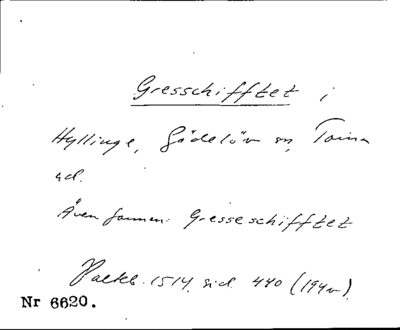 Gresschifftet i
Hyllinge, Gödelöv sn, Torna
hd.
Även formen: Gresseschifftet
Palteb. 1514, sid. 440 (194v).
Nr 6620.